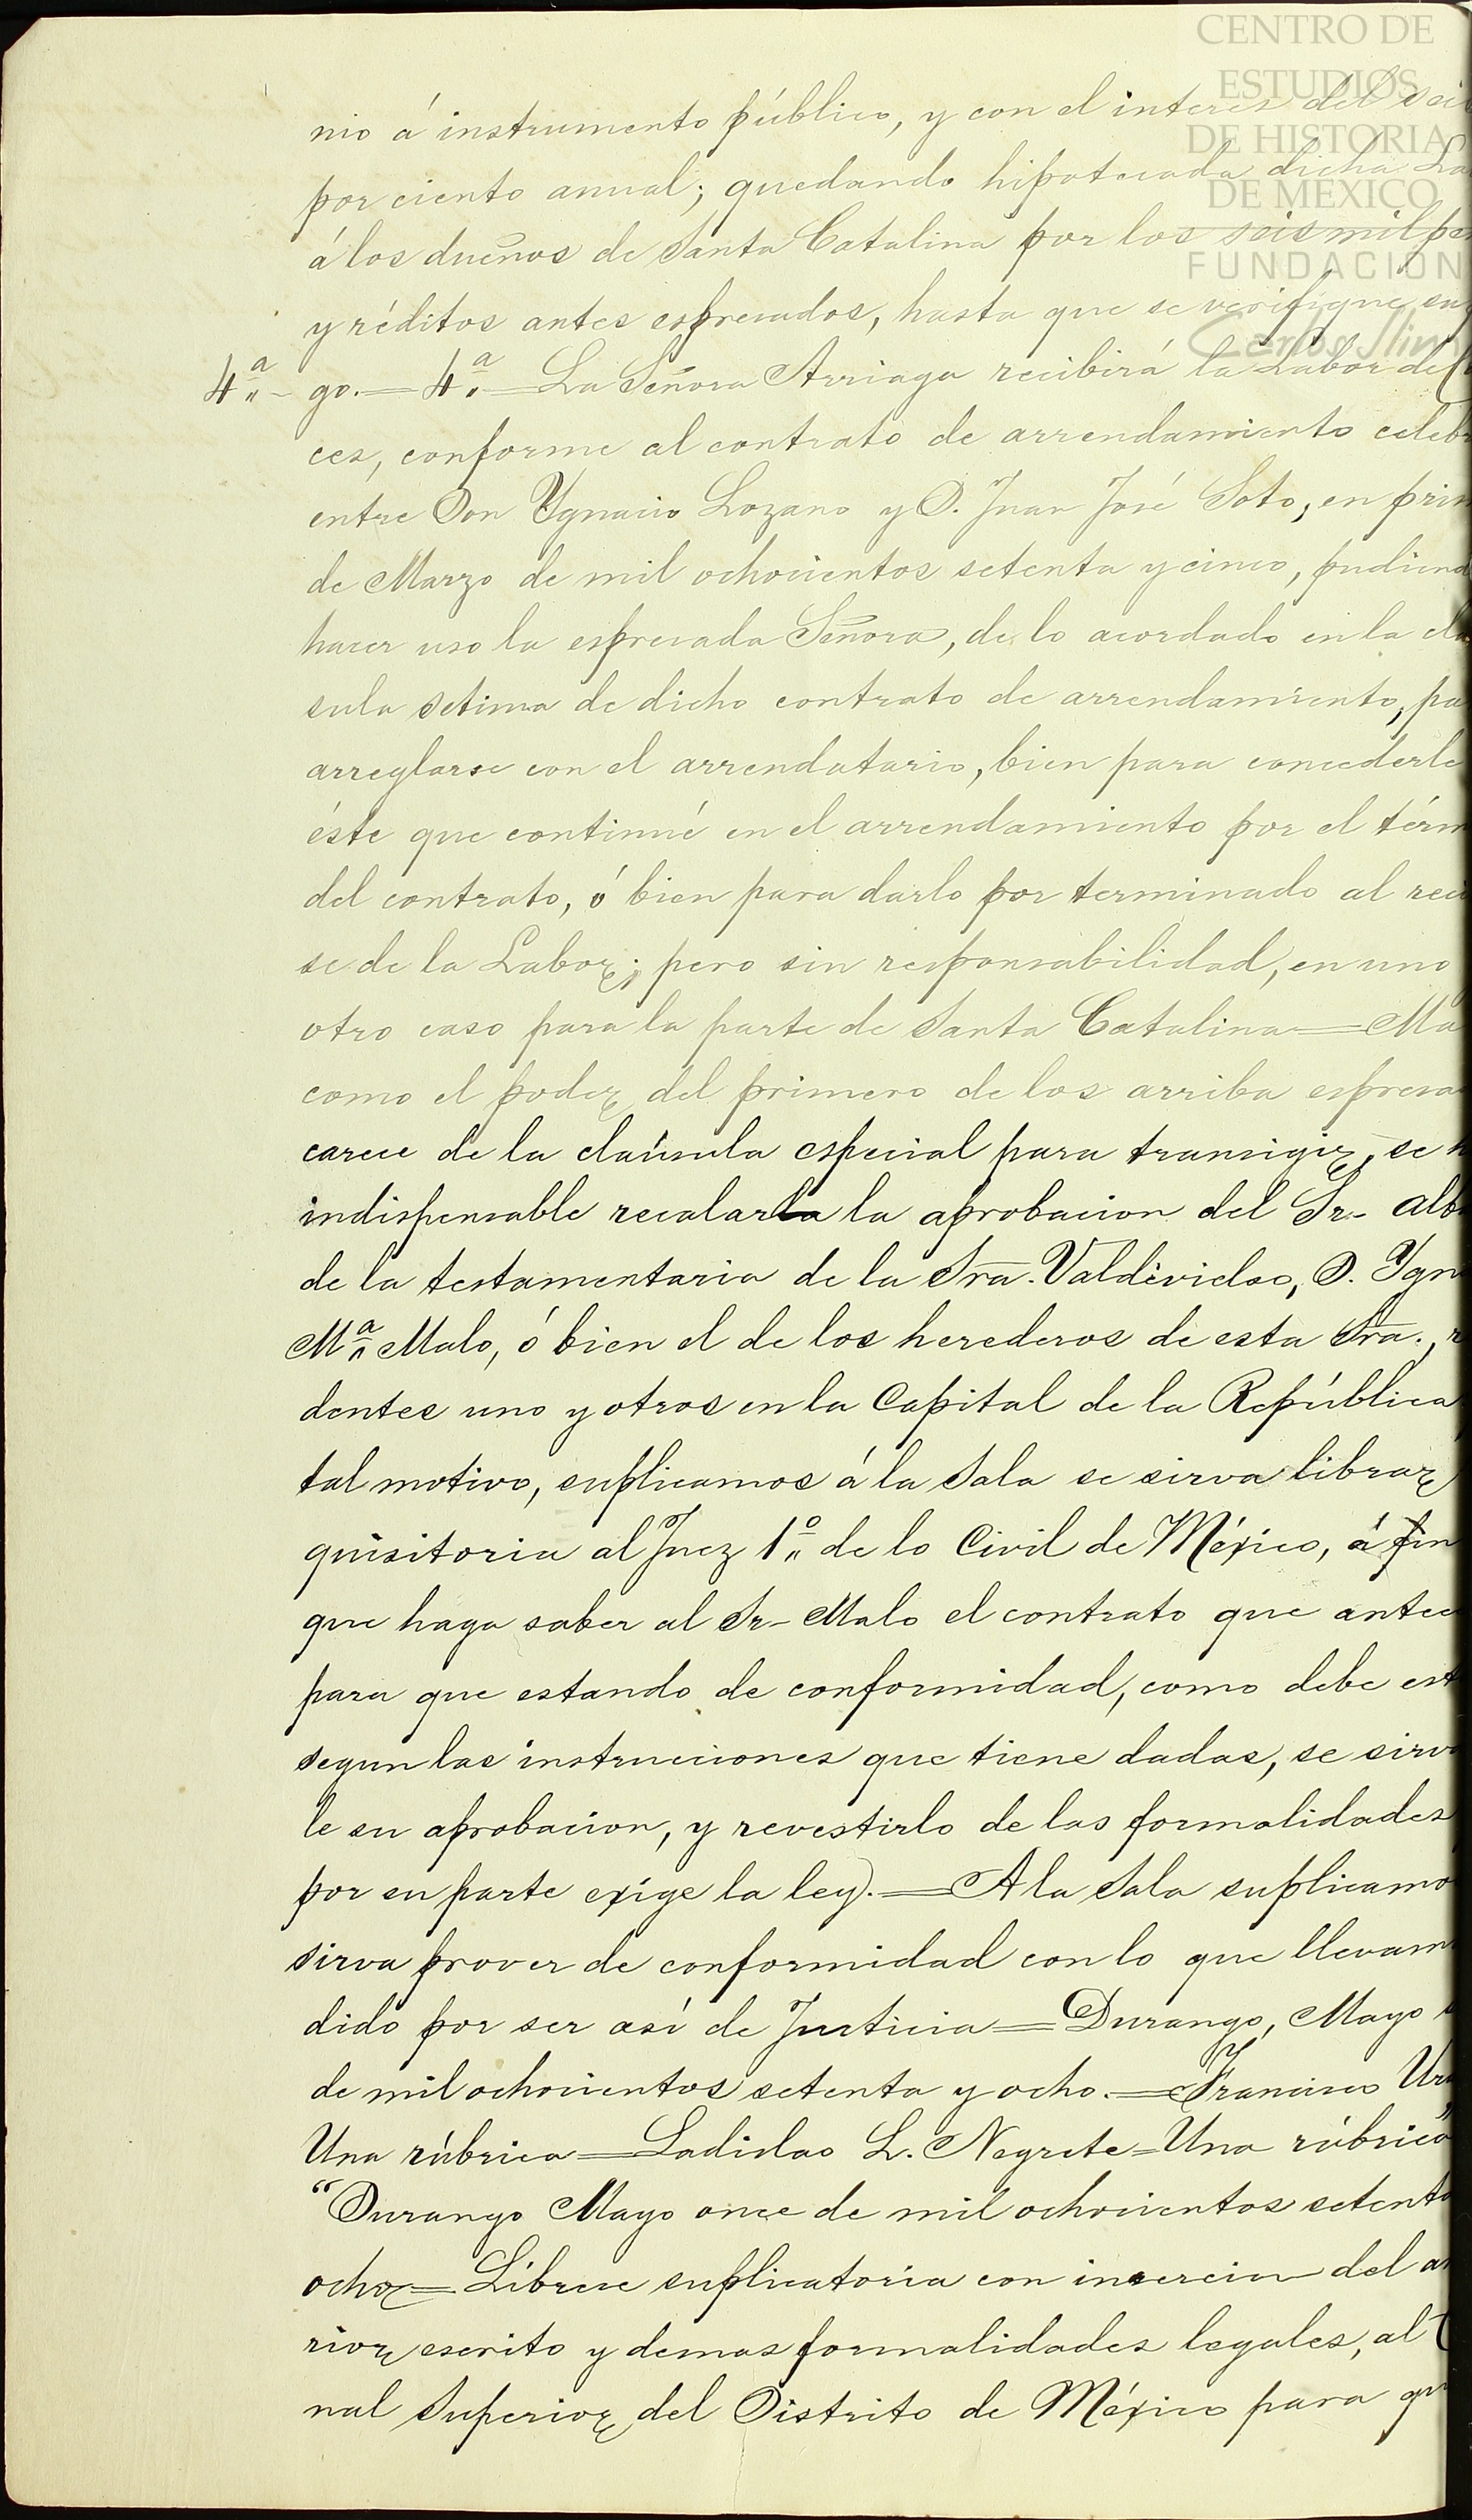 CENTRO DE
ESTUDIOS
DE HISTORIA
DE MEXICO
FUNDACION
Carlos Slim
nio á instrumento público, y con el interes del sei
por ciento anual; quedando hipotecada dicha La
á los dueños de Santa Catalina por los seis mil pe
y réditos antes espresados, hasta que se verifique su
4.ª - go. = 4.ª = La Señora Arriaga recibirá la Labor de
ces, conforme al contrato de arrendamiento celeb
entre Don Ygnacio Lozano y D. Juan José Soto, en prim
de Marzo de mil ochocientos setenta y cinco, pudiend
hacer uso la espresada Señora, de lo acordado en la cla
sula setima de dicho contrato de arrendamiento, pa
arreglarse con el arrendatario, bien para concederle
éste que continué en el arrendamiento por el térm
del contrato, ó bien para darlo por terminado al reci
se de la Labor; pero sin responsabilidad, en uno
otro caso para la parte de Santa Catalina = Ma
como el poder del primero de los arriba espresa
carece de la claúsula especial para transigir, se h
indispensable recalarla la aprobacion del Sr- alb
de la testamentaria de la Sra. Valdivielso, D. Ygn
M.ª Malo, ó bien el de los herederos de esta Sra., r
dentes uno y otros en la Capital de la República
tal motivo, suplicamos á la Sala se sirva librar
quisitoria al Juez 1.º de lo Civil de México, á fin
que haga saber al Sr- Malo el contrato que antec
para que estando de conformidad, como debe est
segun las instrucciones que tiene dadas, se sirva
le su aprobacion, y revestirlo de las formalidades
por su parte exige la ley. = A la Sala suplicamo
sirva prover de conformidad con lo que llevam
dido por ser así de Justicia = Durango, Mayo
de mil ochocientos setenta y ocho. = Francisco Ur
Una rúbrica = Ladislao L. Negrete = Una rúbrica"
"Durango Mayo once de mil ochocientos setenta
ocho = Librese suplicatoria con insercion del an
rior escrito y demas formalidades legales, al
nal Superior del Distrito de México para qu